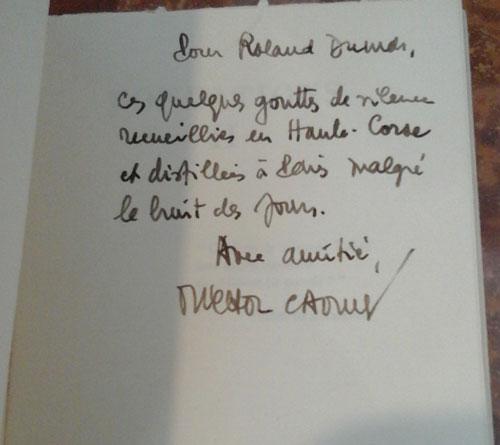 Pour Roland Dumas,
ces quelques gouttes de silence
recueillies en Haute-Corse
et distillées à Paris malgré
le bruit des jours.
Avec amitié,